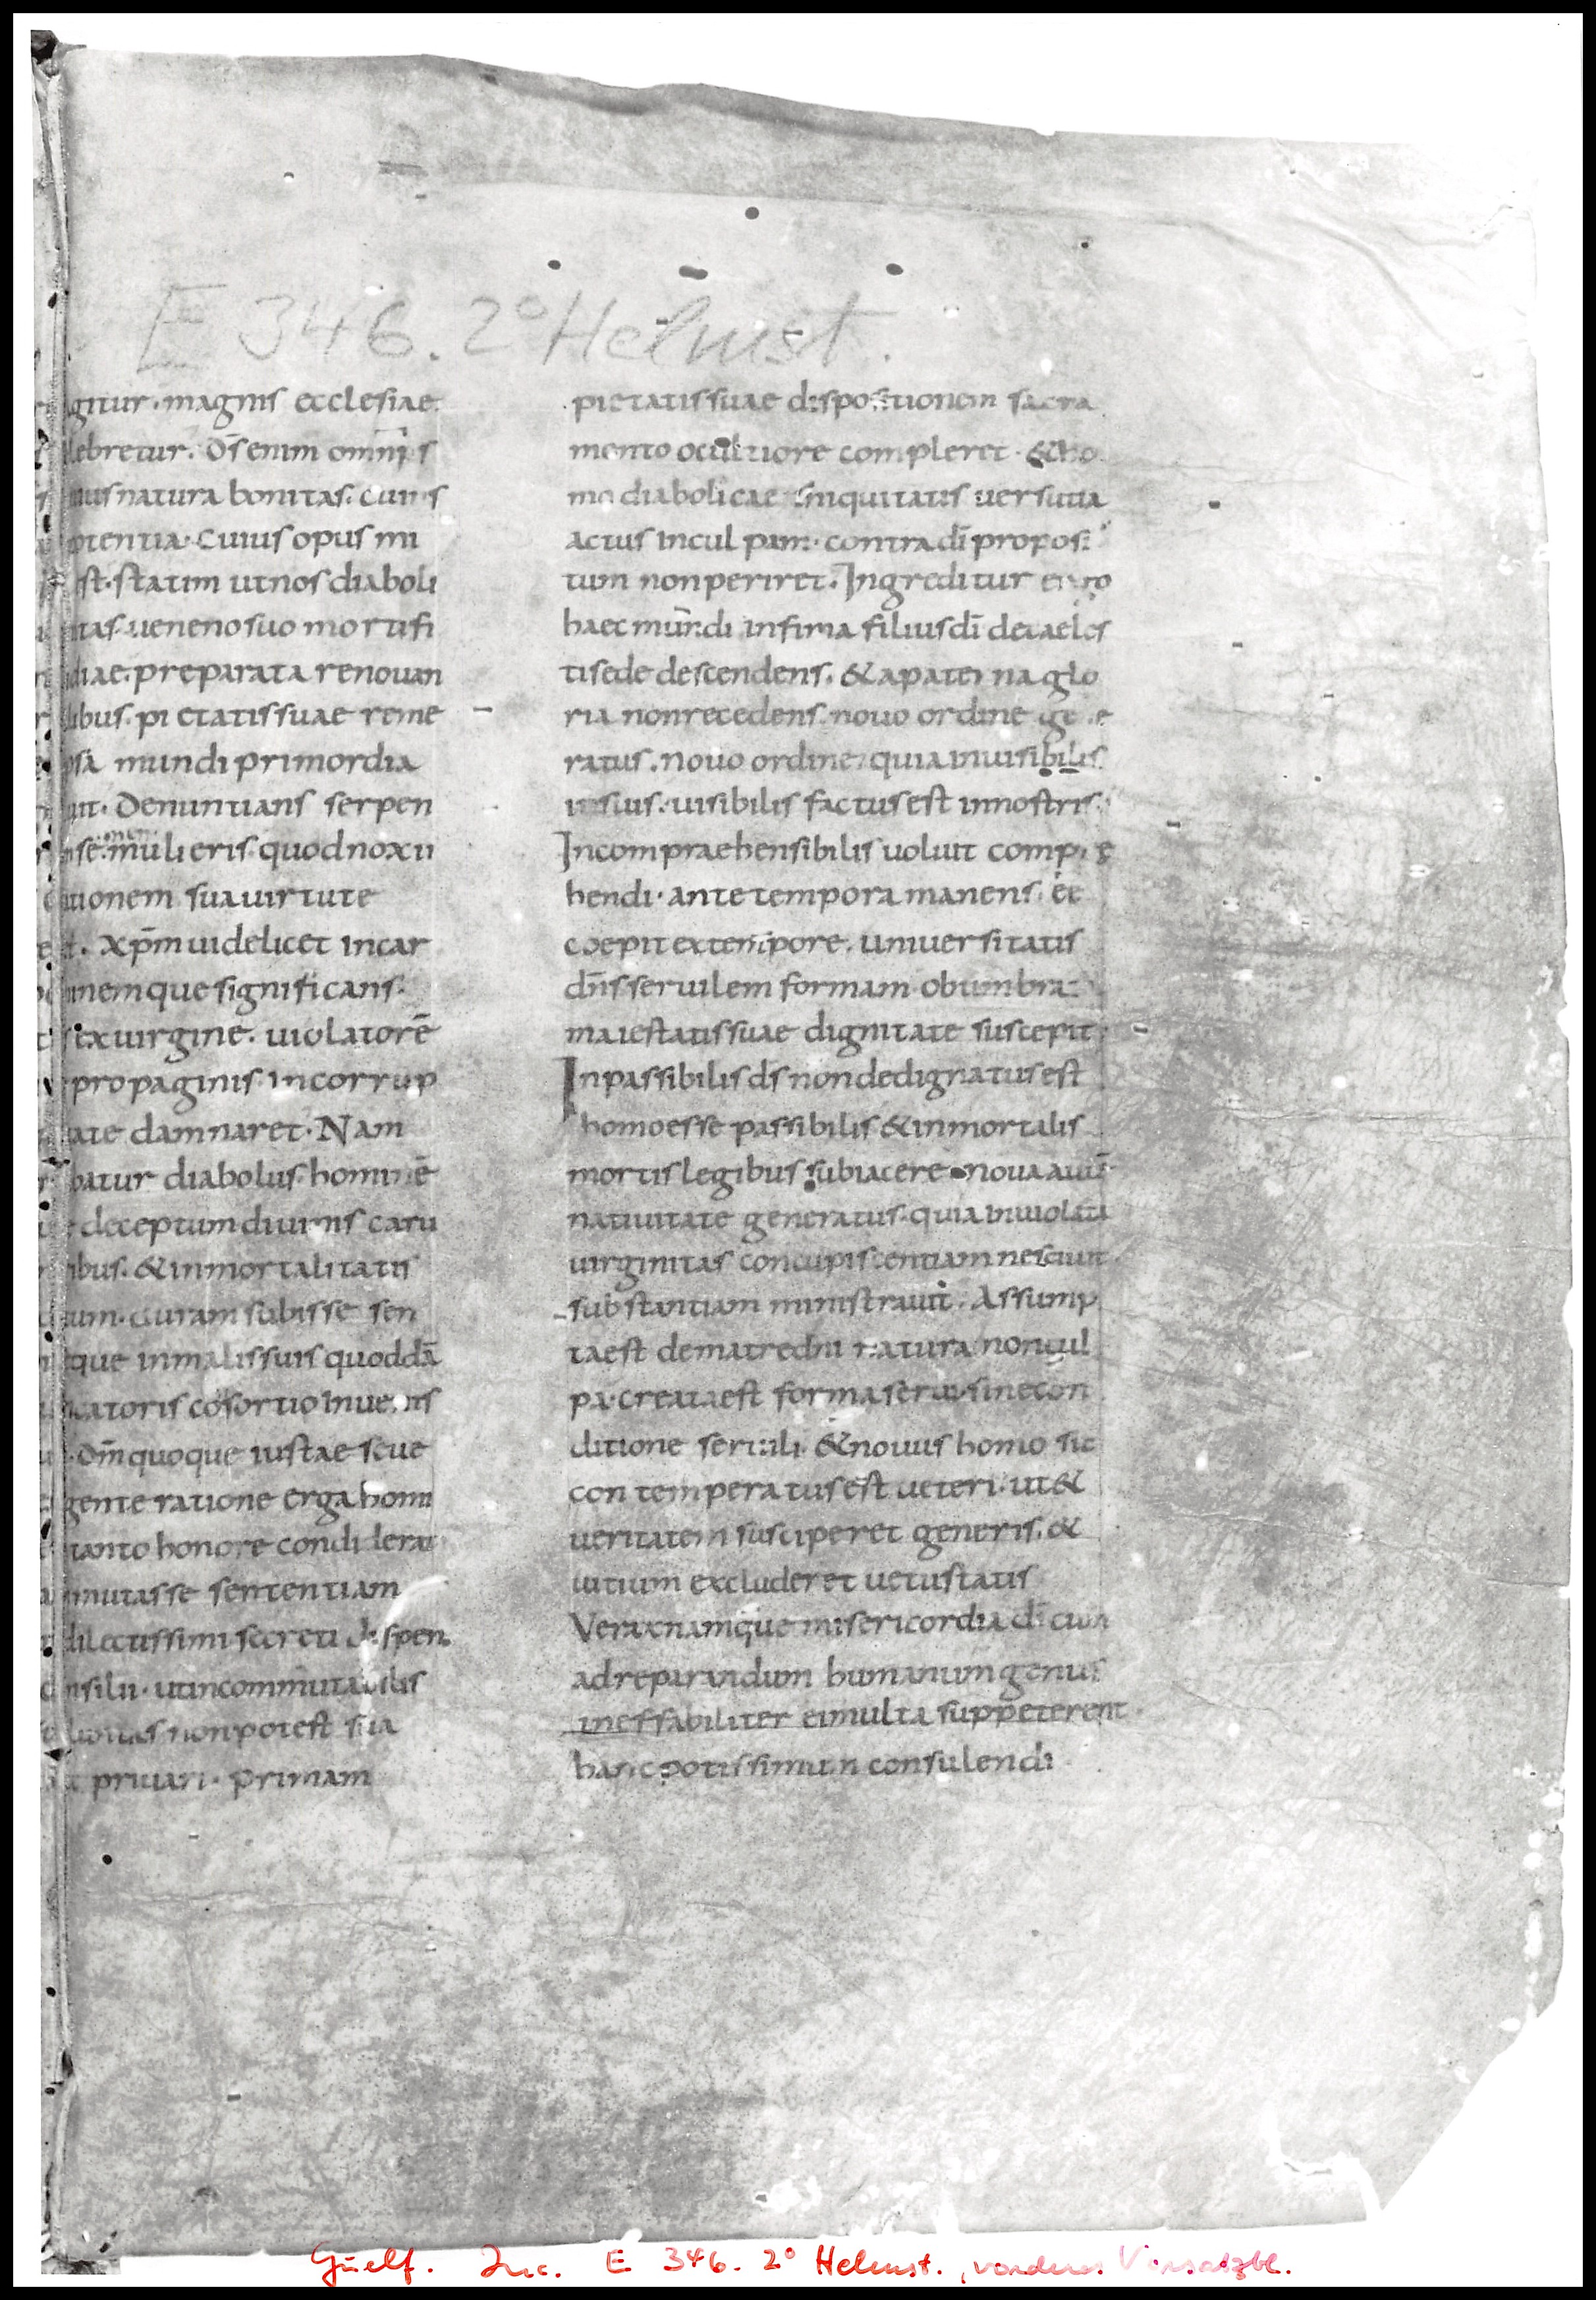 E 346. 2° Helmst.
gitur · magnis ecclesiae
lebretur. Ds̄ enim omnip s
mus natura bonitas. Cuius
pientia. Cuius opus mi
st. statim ut nos diaboli
itas ueneno suo mortifi
diae. preparata renouan
libus. pietatis suae reme
psa mundi primordia
uit. Denuntians serpen
se. mulieris. quod noxii
tionem sua uirtute
t. Xp̄m uidelicet in car
inemque significans.
ex uirgine. uiolatorē
propaginis. incorrup
ate damnaret. Nam
batur diabolus. hominē
deceptum diuinis caru
ibus. & inmortalitatis
um. duram subisse sen
que in malis suis quoddā
icatoris cōsortio inuenis
Dm̄ quoque iustae seue
gente ratione erga homi
tanto honore condiderat
mutasse sententiam
dilectissimi secreti dispen
nsilii. ut incommutabilis
luntas non potest sua
priuari. Primam
pietatis suae dispositionem sacra
mento ocultiore compleret. & ho
mo diabolicae iniquitatis uersutia
actus in culpam. contra dī proposi
tum non periret. Ingreditur ergo
haec mundi infima filius dī de caeles
ti sede descendens. & a paterna glo
ria non recedens. nouo ordine ge e
ratus. Nouo ordine. quia inuisibilis
in suis. uisibilis factus est in nostris.
Incompraehensibilis uoluit compre
hendi. ante tempora manens. eē
coepit ex tempore. Uniuersitatis
dn̄s seruilem formam obumbra
maiestatis suae dignitate suscepit.
Inpassibilis ds̄ non dedignatus est
homo esse passibilis & inmortalis
mortis legibus subiacere. Noua autē
natiuitate generatus. quia inuiolata
uirginitas concupiscentiam nesciuit
substantiam ministrauit. Assump
ta est de matre dn̄i natura non cul
pa. creata est forma serui. sine con
ditione seruili. & nouus homo sic
contemperatus est ueteri. ut &
ueritatem susciperet generis. &
uitium excluderet uetustatis
Verax namque misericordia dī cum
ad reparandum humanum genus
ineffabiliter ei multa suppeterent
hanc potissimum consulendi
Guelf. Inc. E 346. 2° Helmst., vorderes Vorsatzbl.